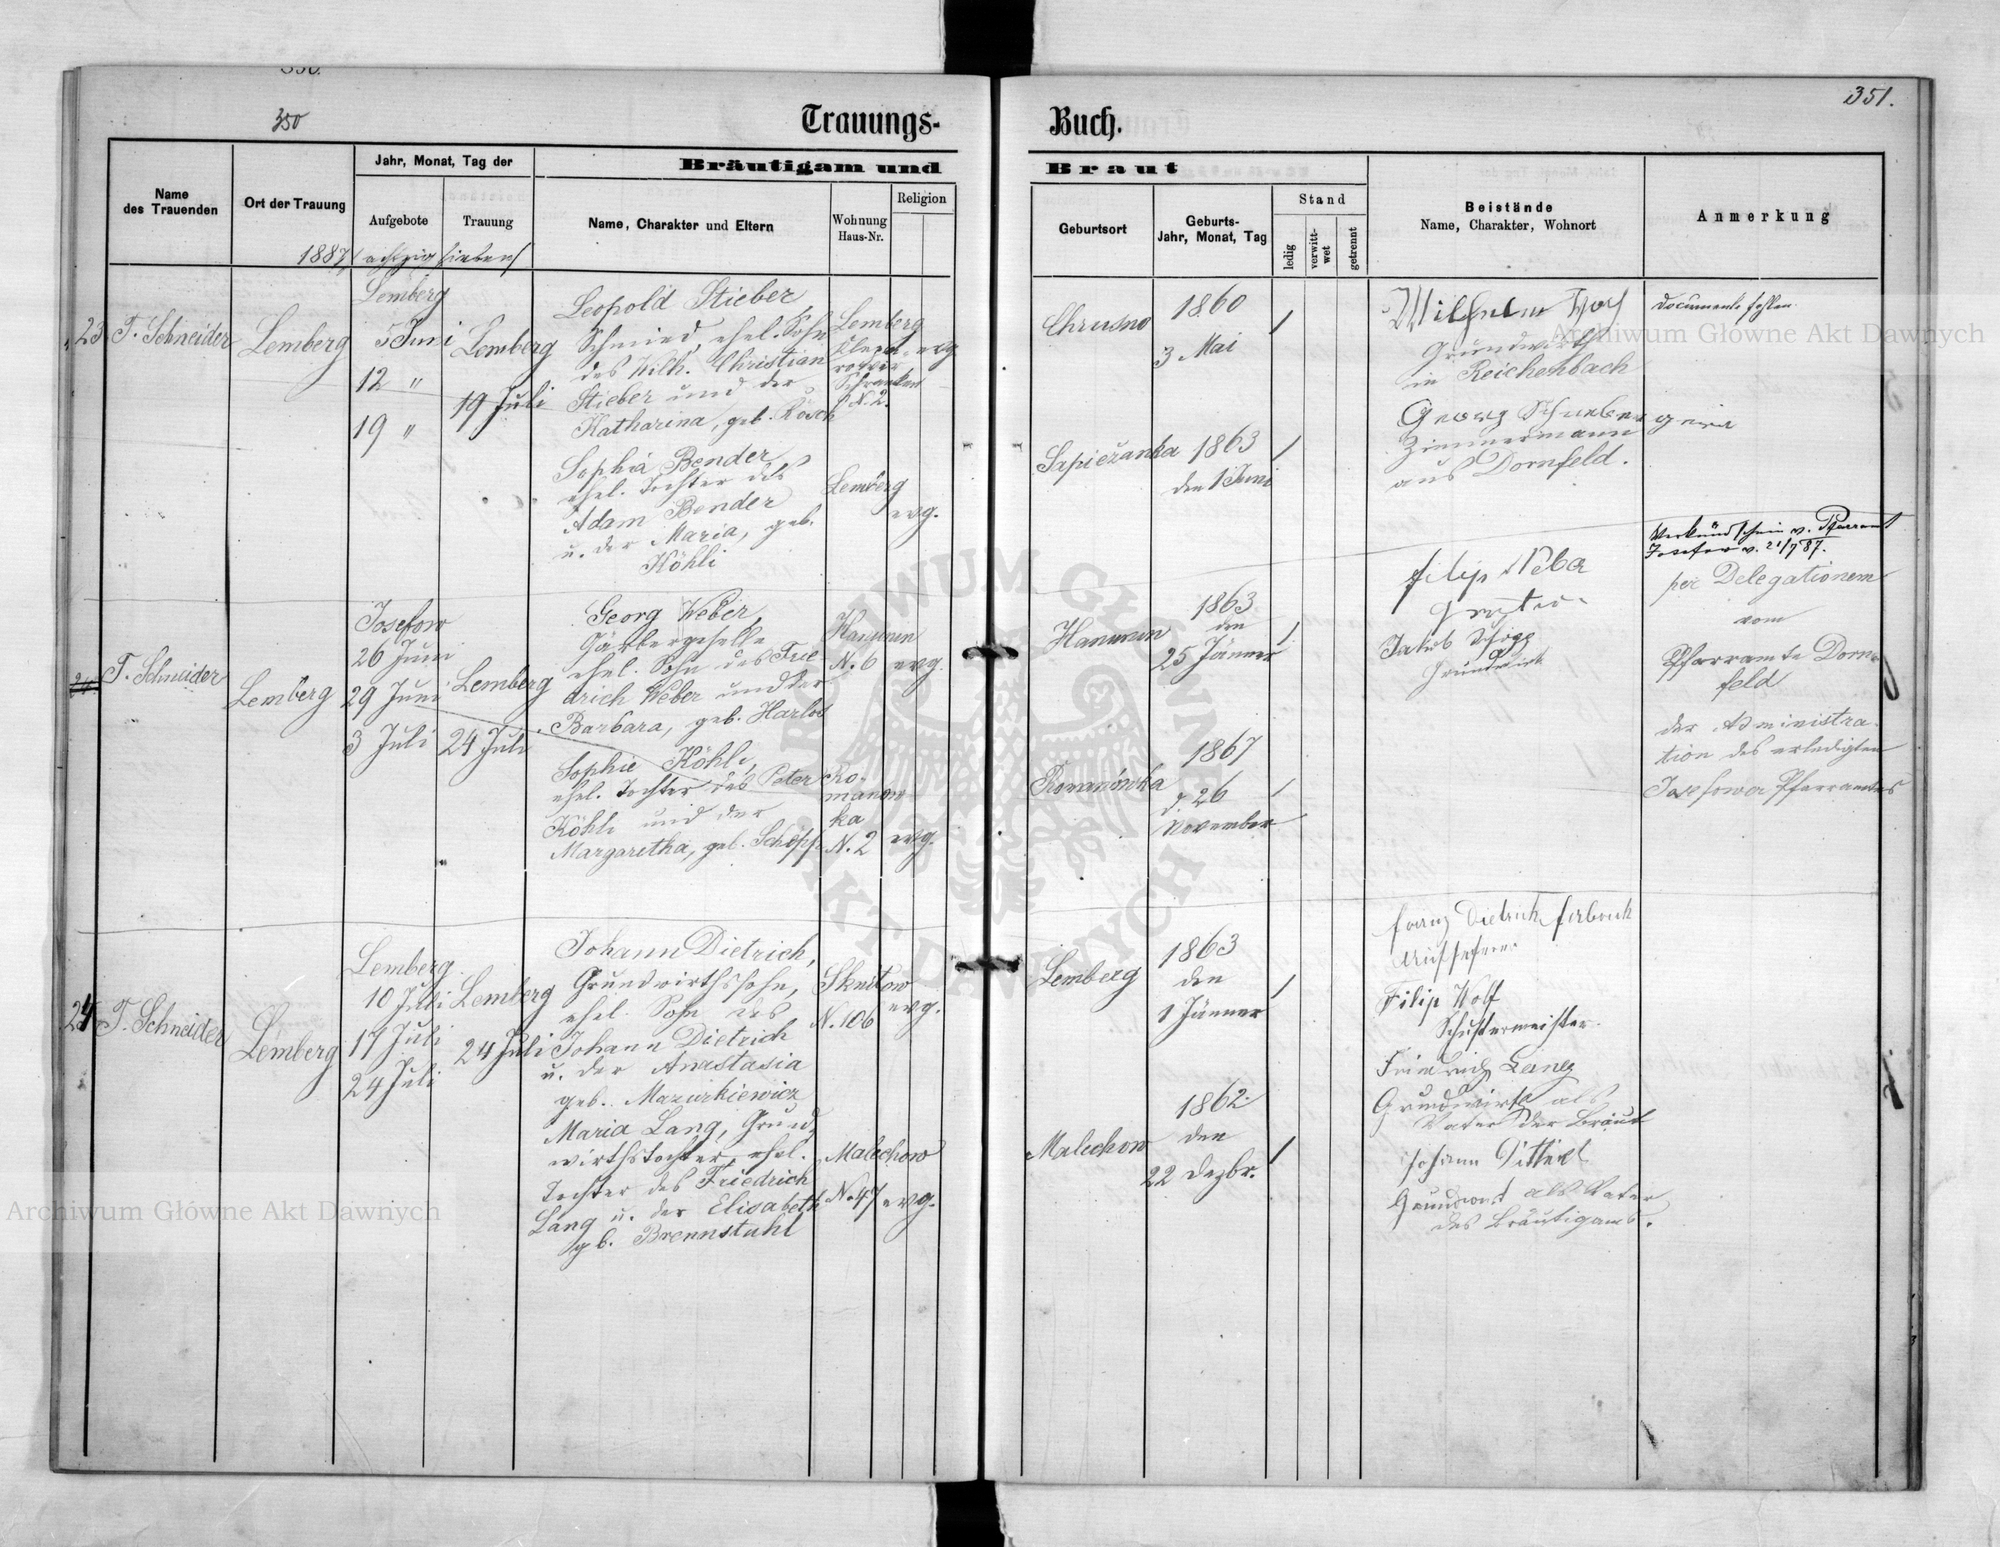 350
351.
Trauungs-
Buch.
Name
des Trauenden
Ort der Trauung
Jahr, Monat, Tag der
Aufgebote
Trauung
Bräutigam und
Braut
Name, Charakter und Eltern
Wohnung
Haus-Nr.
Religion
Geburtsort
Geburts-
Jahr, Monat, Tag
Stand
ledig
verwitt-
wet
getrennt
Beistände
Name, Charakter, Wohnort
Anmerkung
1887 (achtzig sieben)
23
T. Schneider
Lemberg
Lemberg
5 Juni
12 "
19 "
Lemberg
19 Juli
Leopold Stieber,
Schmied, ehel. Sohn
des Wilh. Christian
Stieber und der
Katharina, geb. Rösch
Lemberg
Schranken
N. 2.
evg.
Chrusno
1860
3 Mai
Wilhelm
Grundwirth
in Reichenbach
Documente fehlen.
Sophia Bender
ehel. Tochter des
Adam Bender
u. der Maria, geb.
Köhli
Lemberg
evg.
Sapieżanka
1863
den 1 Juni
Georg
Zimmermann
aus Dornfeld.
T. Schneider
Lemberg
Josefow
26 Juni
29 Juni
3 Juli
Lemberg
24 Juli
Georg Weber,
ehel. Sohn des Frie-
drich Weber und der
Barbara, geb. Harlos
Hanunin
N. 6
evg.
Hanunin
1863
den
25 Jänner
Filip
Jakob
Grundwirt
Verkündschein v. Pfarramt
Josefow v. 21/7 87.
per Delegationem
vom
Pfarramte Dorn-
feld
der Administra-
tion des erledigten
Josefower Pfarramtes
Sophie Köhli,
ehel. Tochter des Peter
Köhli und der
Margaretha, geb. Schöpp
Ro-
manow-
ka
N. 2
evg.
Romanówka
1867
d. 26
November
24
T. Schneider
Lemberg
Lemberg
10 Juli
17 Juli
24 Juli
Lemberg
24 Juli
Johann Dietrich,
Grundwirthssohn,
ehel. Sohn des
Johann Dietrich
u. der Anastasia
geb. Mazurkiewicz
Sknitow
N. 106
evg.
Lemberg
1863
den
1 Jänner
Franz Dietrich
Filip Wolf
Schustermeister.
Maria Lang, Grund-
wirthstochter, ehel.
Tochter des Friedrich
Lang u. der Elisabeth
gb. Brennstuhl
Malechow
N. 47
evg.
Malechow
1862
den
22 Dezbr.
Friedrich Lang
Grundwirth als
Vater der Braut
Johann
Grundwirt als Vater
des Bräutigams.
Archiwum Główne Akt Dawnych
Archiwum Główne Akt Dawnych
ARCHIWUM GŁÓWNE AKT DAWNYCH